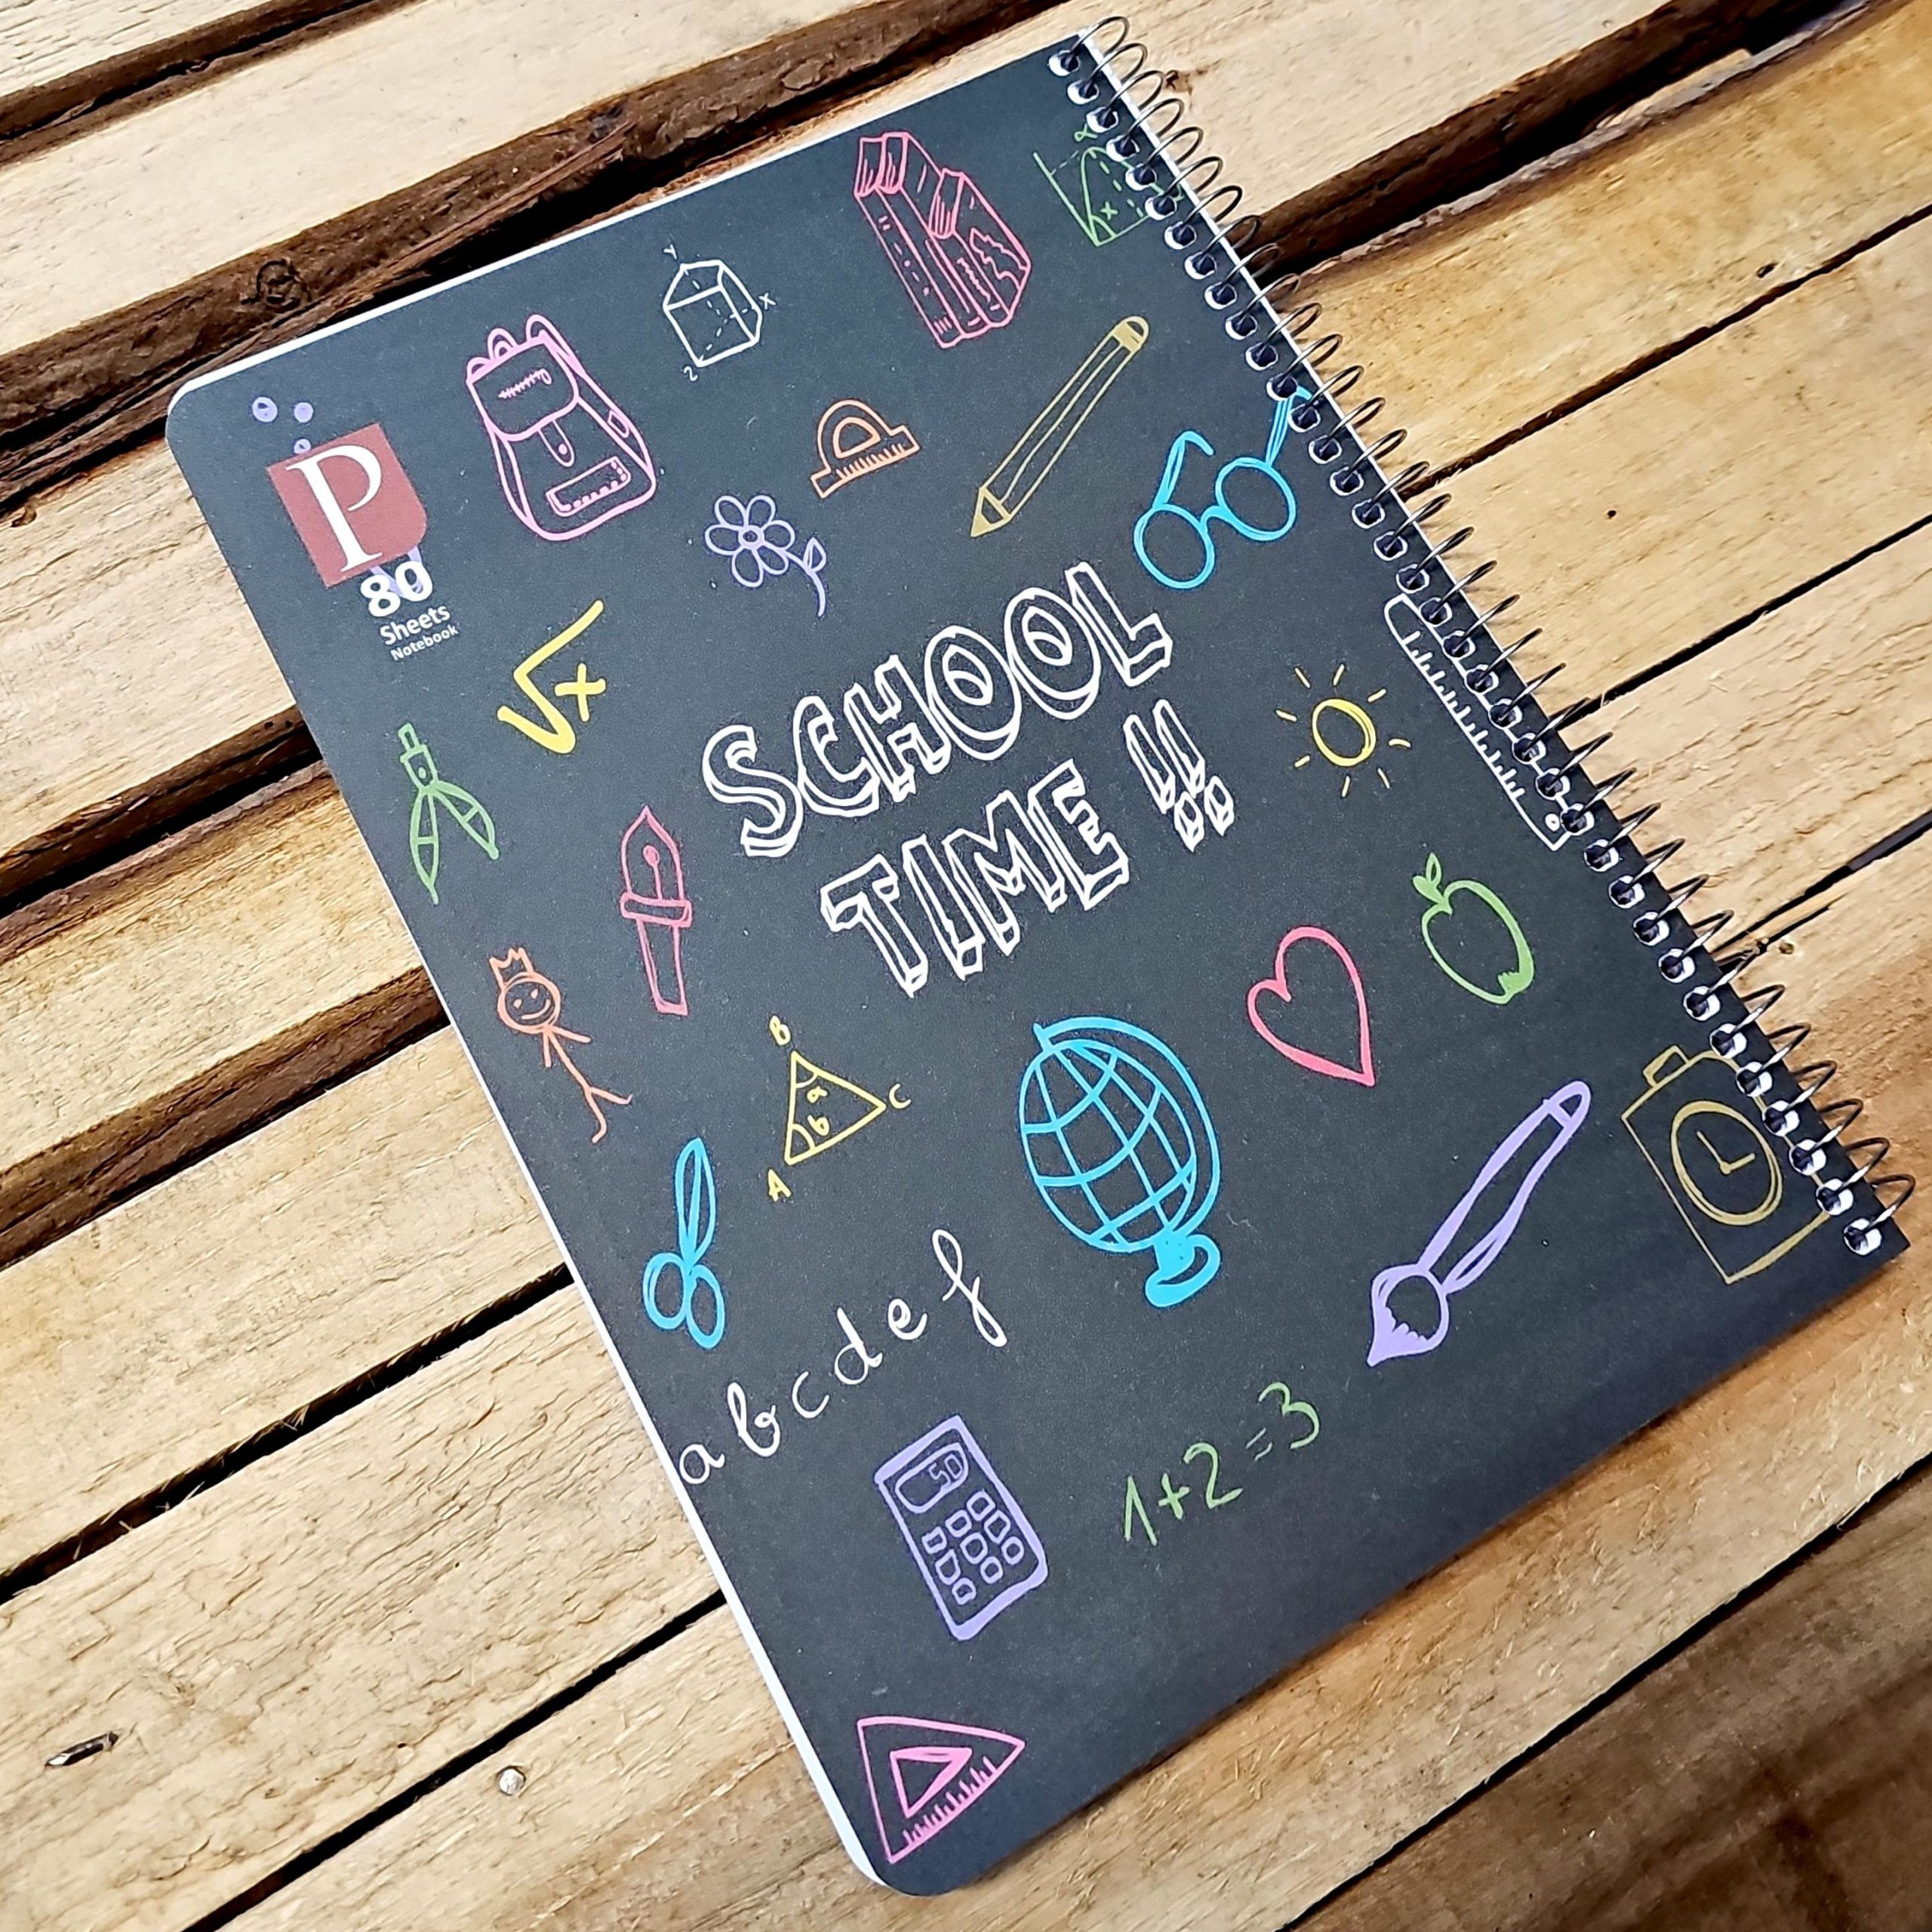 P
80
Sheets
Notebook
Y
X
Z
x
√x
SCHOOL
TIME !!
B
a
b
C
A
a b c d e f
1+2=3